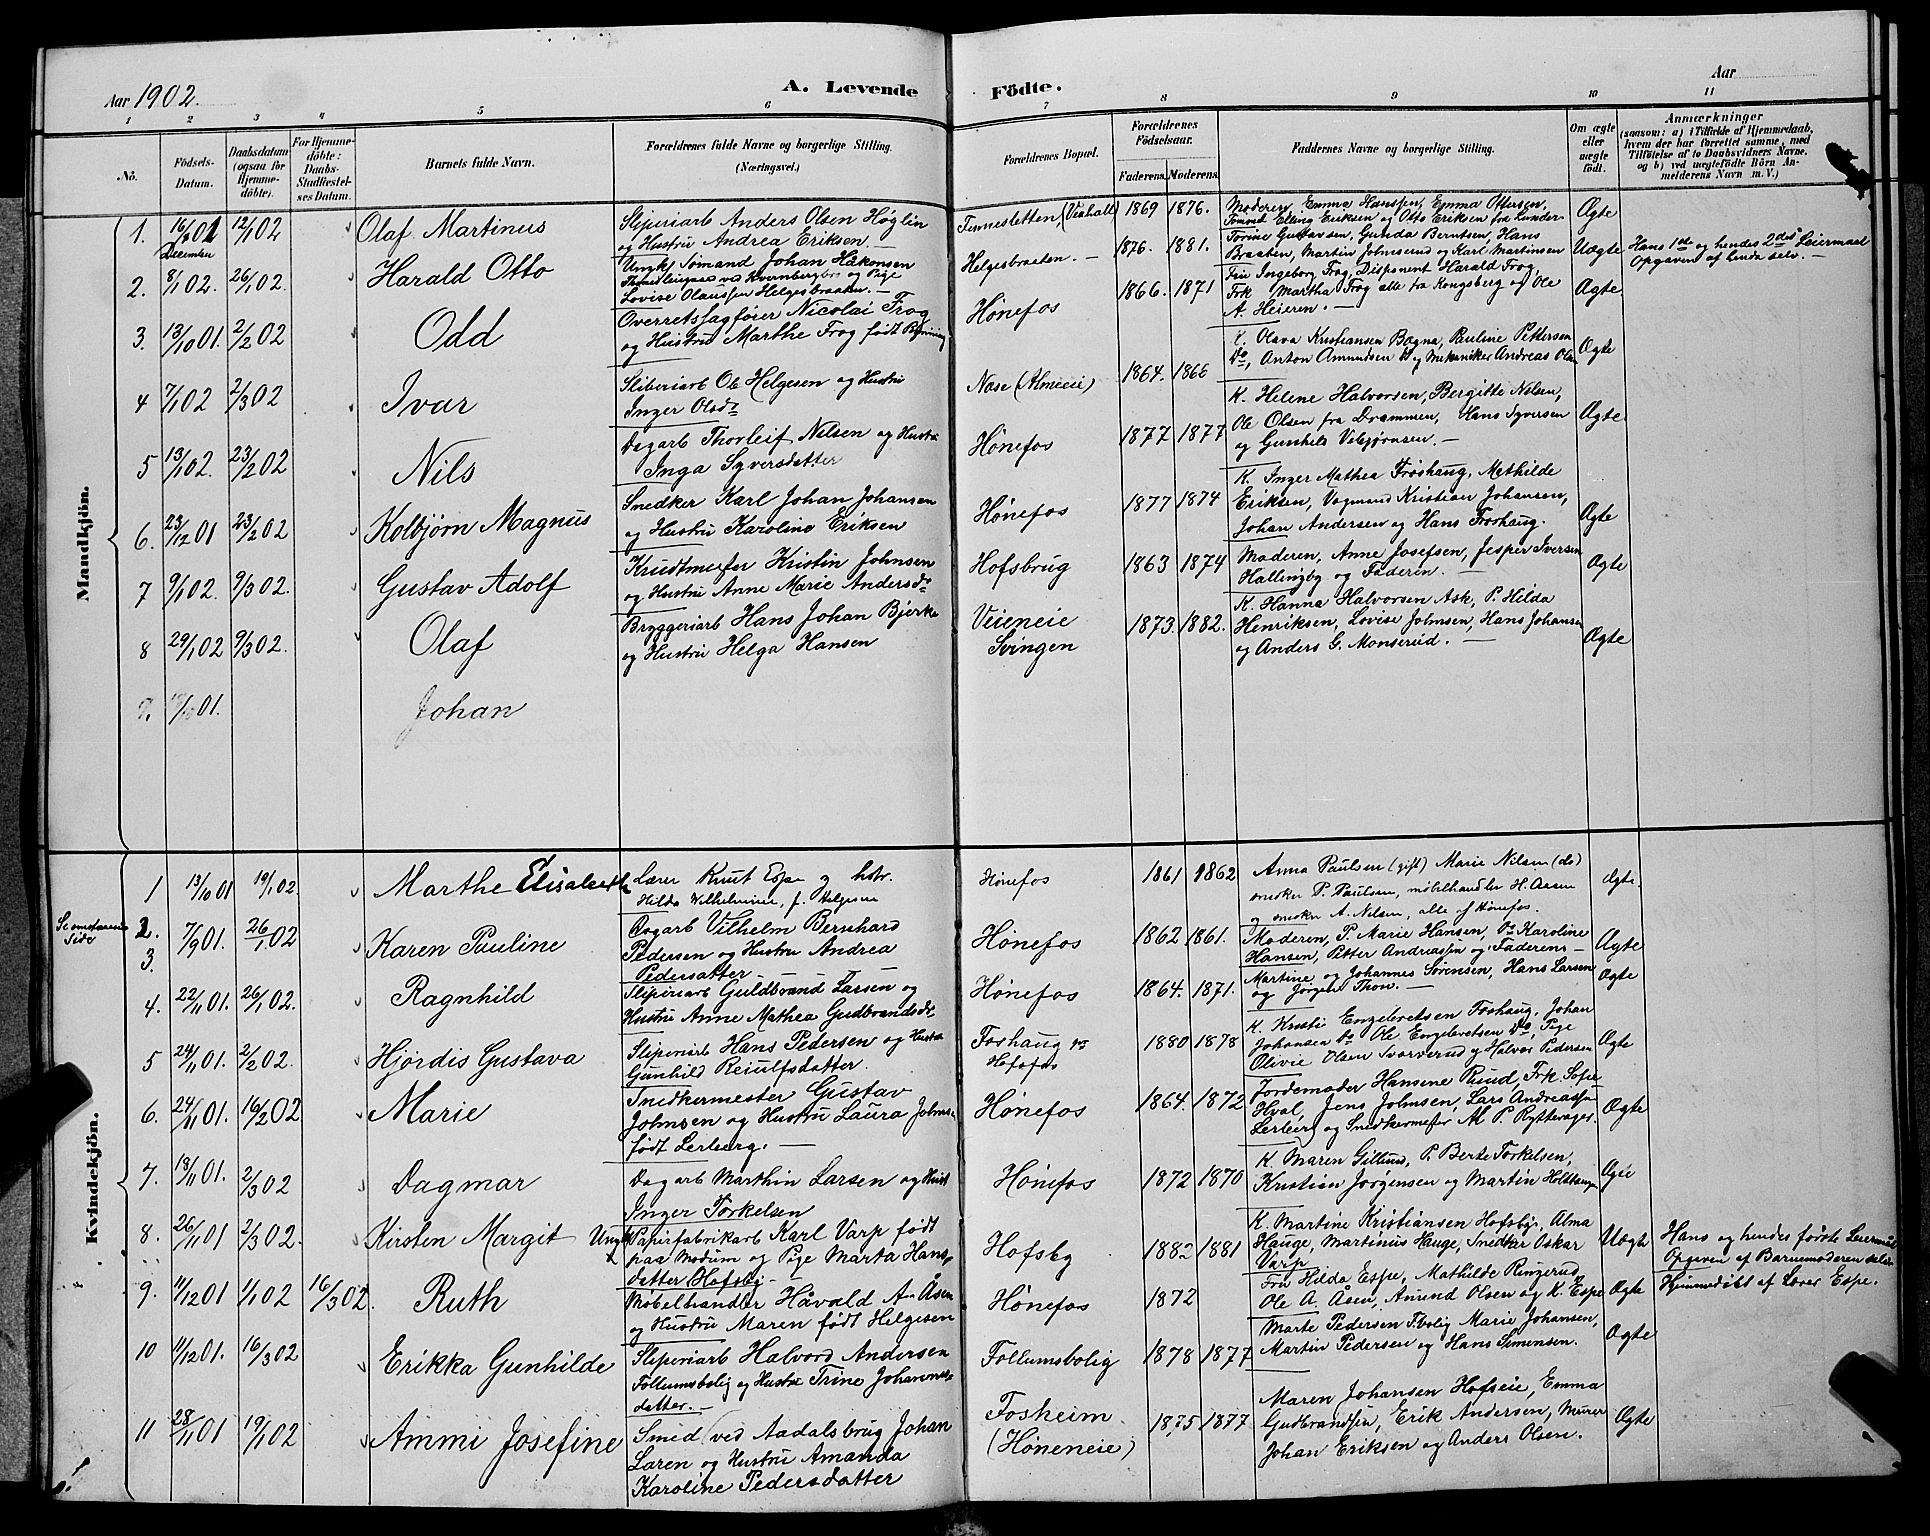 Aar 1902.
A. Levende
Födte.
Aar
1 2 3 4 5 6 7 8 9 10 11
No.
Födsels-
Datum.
Daabsdatum
(ogsaa for
Hjemme-
döbte).
For Hjemme-
döbte:
Daabs-
Stadfæstel-
ses Datum.
Barnets fulde Navn.
Forældrenes fulde Navne og borgerlige Stilling.
(Næringsvei.)
Forældrenes Bopæl.
Forældrenes
Födselsaar.
Faderens. Moderens.
Faddernes Navne og borgerlige Stilling.
Om ægte
eller
uægte
födt.
Anmærkninger
(saasom: a) i Tilfælde af Hjemmedaab,
hvem der har forrettet samme, med
Tilföielse af to Daabsvidners Navne.
og b) ved uægtefödte Börn An-
melderens Navn m. V.)
Mandkjön.
1. 16/ 01 December 12/1 02 Olaf Martinus
Sliperiarb Anders Olsen Høglin
og Hustru Andrea Eriksen.
1869 1876.
Moderen, Emma Hanssen, Emma Ottersen,
Elling Eriksen og Otto Eriksen fra Lunder
Ægte
2. 8/1 02. 26/1 02. Harald Otto
Ungkf Sømand Johan Håkonsen
og Pige
Lovise Olaussen Helgesbraaten.
Helgesbraaten.
1876. 1881.
Torine Gustavsen, Gunda Berntsen, Hans
Braaten, Martin Johnsrud og Karl Martinsen
Uægte
Hans 1ste og hendes 2det Leiermaal
Opgaven af hende selv.
3. 13/10 01. 2/2 02 Odd
Overretssagfører Nicolai Frog
og Hustru Marthe Frog født
Hønefos
1866. 1871
Fru Ingeborg Frog, Disponent Harald Frog,
Frk Martha Frog alle fra Kongsberg og Ole
A. Heieren.
Ægte
4 7/1 02 2/3 02 Ivar
Sliberiarb Ole Helgesen og Hustru
Inger Olsdt
Næse (Almeeie)
1864. 1866
K. Olava Kristiansen Bægna, Pauline Pettersen
Do, Anton Amundsen Do og Mekaniker Andreas Olsen
Ægte
5 13/1 02. 23/2 02 Nils
Dagarb Thorleif Nilsen og Hustru
Inga Syversdatter
Hønefos
1877 1877
K. Helene Halvorsen, Bergitte Nilsen,
Ole Olsen fra Drammen, Hans Syversen
og Gunhild Vebjørnsen.
Ægte
6. 23/12 01 23/2 02 Kolbjørn Magnus
Snedker Karl Johan Johansen
og Hustru Karoline Eriksen
Hønefos
1877 1874
K. Inger Mathea Frøshaug, Mathilde
Eriksen, Vogmand Kristian Johansen,
Johan Andersen og Hans Froshaug.
Ægte
7 9/1 02. 9/3 02. Gustav Adolf
Krudtmester Kristin Johnsen
og Hustru Anne Marie Andersdt
Hofsbrug
1863 1874
Moderen, Anne Josefsen, Jesper Iversen
Hallingby og Faderen.
Ægte
8 29/1 02 9/3 02. Olaf
Bryggeriarb Hans Johan Bjerke
og Hustru Helga Hansen
Veieneie
Svingen
1873. 1882.
K. Hanna Halvorsen Ask, P. Hilda
Henriksen, Lovise Johnsen, Hans Johansen
og Anders G. Monserud.
Ægte
9. 01. Johan
Kvindekjön.
1 13/10 01 19/1 02. Marthe Elisabeth
Lærer Knut Espe og hstr.
Hilda Vilhelmine, f. Helgesen
Hønefos
1861 1862
Anna Paulsen (gift) Marie Nilsen (do)
snedker P. Paulsen, møbelhandler H. Aasen
og snedker A. Nilsen, alle af Hønefos.
Ægte.
Side
2.
3. 7/9 01. 26/1 02 Karen Pauline
Dagarb Vilhelm Bernhard
Pedersen og Hustru Andrea
Pedersdatter
Hønefos
1862 1861.
Moderen, P. Marie Hansen, P. Karoline
Hansen, Petter Andreassen og Faderen
Ægte
4. 22/11 01. 26/1 02. Ragnhild
Sliperiarb Guldbrand Larsen og
Hustru Anne Mathea Gudbrandsdt
Hønefos
1864. 1871.
Martine og Johannes Sørensen, Hans Larsen
og Jørgen Thon.
Ægte
5 24/11 01. 2/2 02. Hjørdis Gustava
Sliperiarb Hans Pedersen og Hustru
Gunhild Reiulfsdatter.
Foshaug
Hofsfos
1880 1878
K. Kristi Engebretsen Foshaug, Johan
Johansen Do Ole Engebretsen Do, Pige
Olivie Olsen Svarverud og Halvor Pedersen
Ægte
6. 24/11 01. 16/2 02 Marie
Snedkermester Gustav
Johnsen og Hustru Laura Johnsen
født Lerberg.
Hønefos
1864. 1872
Jordemoder Hansene Ruud, Frk Sofie
Hval, Jens Johnsen, Lars Andreassen
Lerberg og Snedkermester M. P. Ryttervager
Ægte
7. 18/11 01. 2/3 02 Dagmar
Dagarb Marthin Larsen og Hust
Inger Torkelsen
Hønefos
1872 1870
K. Maren Gillund, P. Berte Torkelsen,
Kristian Jørgensen og Martin
Ægte
8. 26/11 01 2/3 02. Kirsten Margit
Ungk Papirfabrikarb Karl Varp født
paa Modum og Pige Marta Hans-
datter Hofsby
Hofsby
1882 1881
K. Martine Kristiansen Hofsby, Alma
Hauge, Martinus Hauge, Snedker Oskar
Varp
Uægte
Hans og hendes første Leiermaal
Opgiven af Barnemoderen selv
9. 11/12 01 1/1 02 16/3 02. Ruth
Møbelhandler Håvald A. Åsen
og Hustru Maren født Helgesen
Hønefos
1872
Fru Hilda Espe, Mathilde Ringerud,
Ole A. Åsen, Amund Olsen og K. Espe
Ægte
Hjemmedøbt af Lærer Espe.
10 11/12 01. 16/3 02 Erikka Gunhilde
Sliperiarb Halvord Andersen
Follumsbolig og Hustru Trine Johannes-
datter.
Follumsbolig
1878 1877
Marte Pedersen F.bolig Marie Johansen,
Martin Pedersen og Hans Simensen.
Ægte
11 28/11 01 19/1 02 Ammi Josefine
Smed (ved Aadalsbrug Johan
Laren og Hustru Amanda
Karoline Pedersdatter
Fosheim
(Høneneie)
1875 1877
Maren Johansen Hofseie, Emma
Gudbrandsen, Erik Andersen, Murer
Johan Eriksen og Anders Olsen.
Ægte